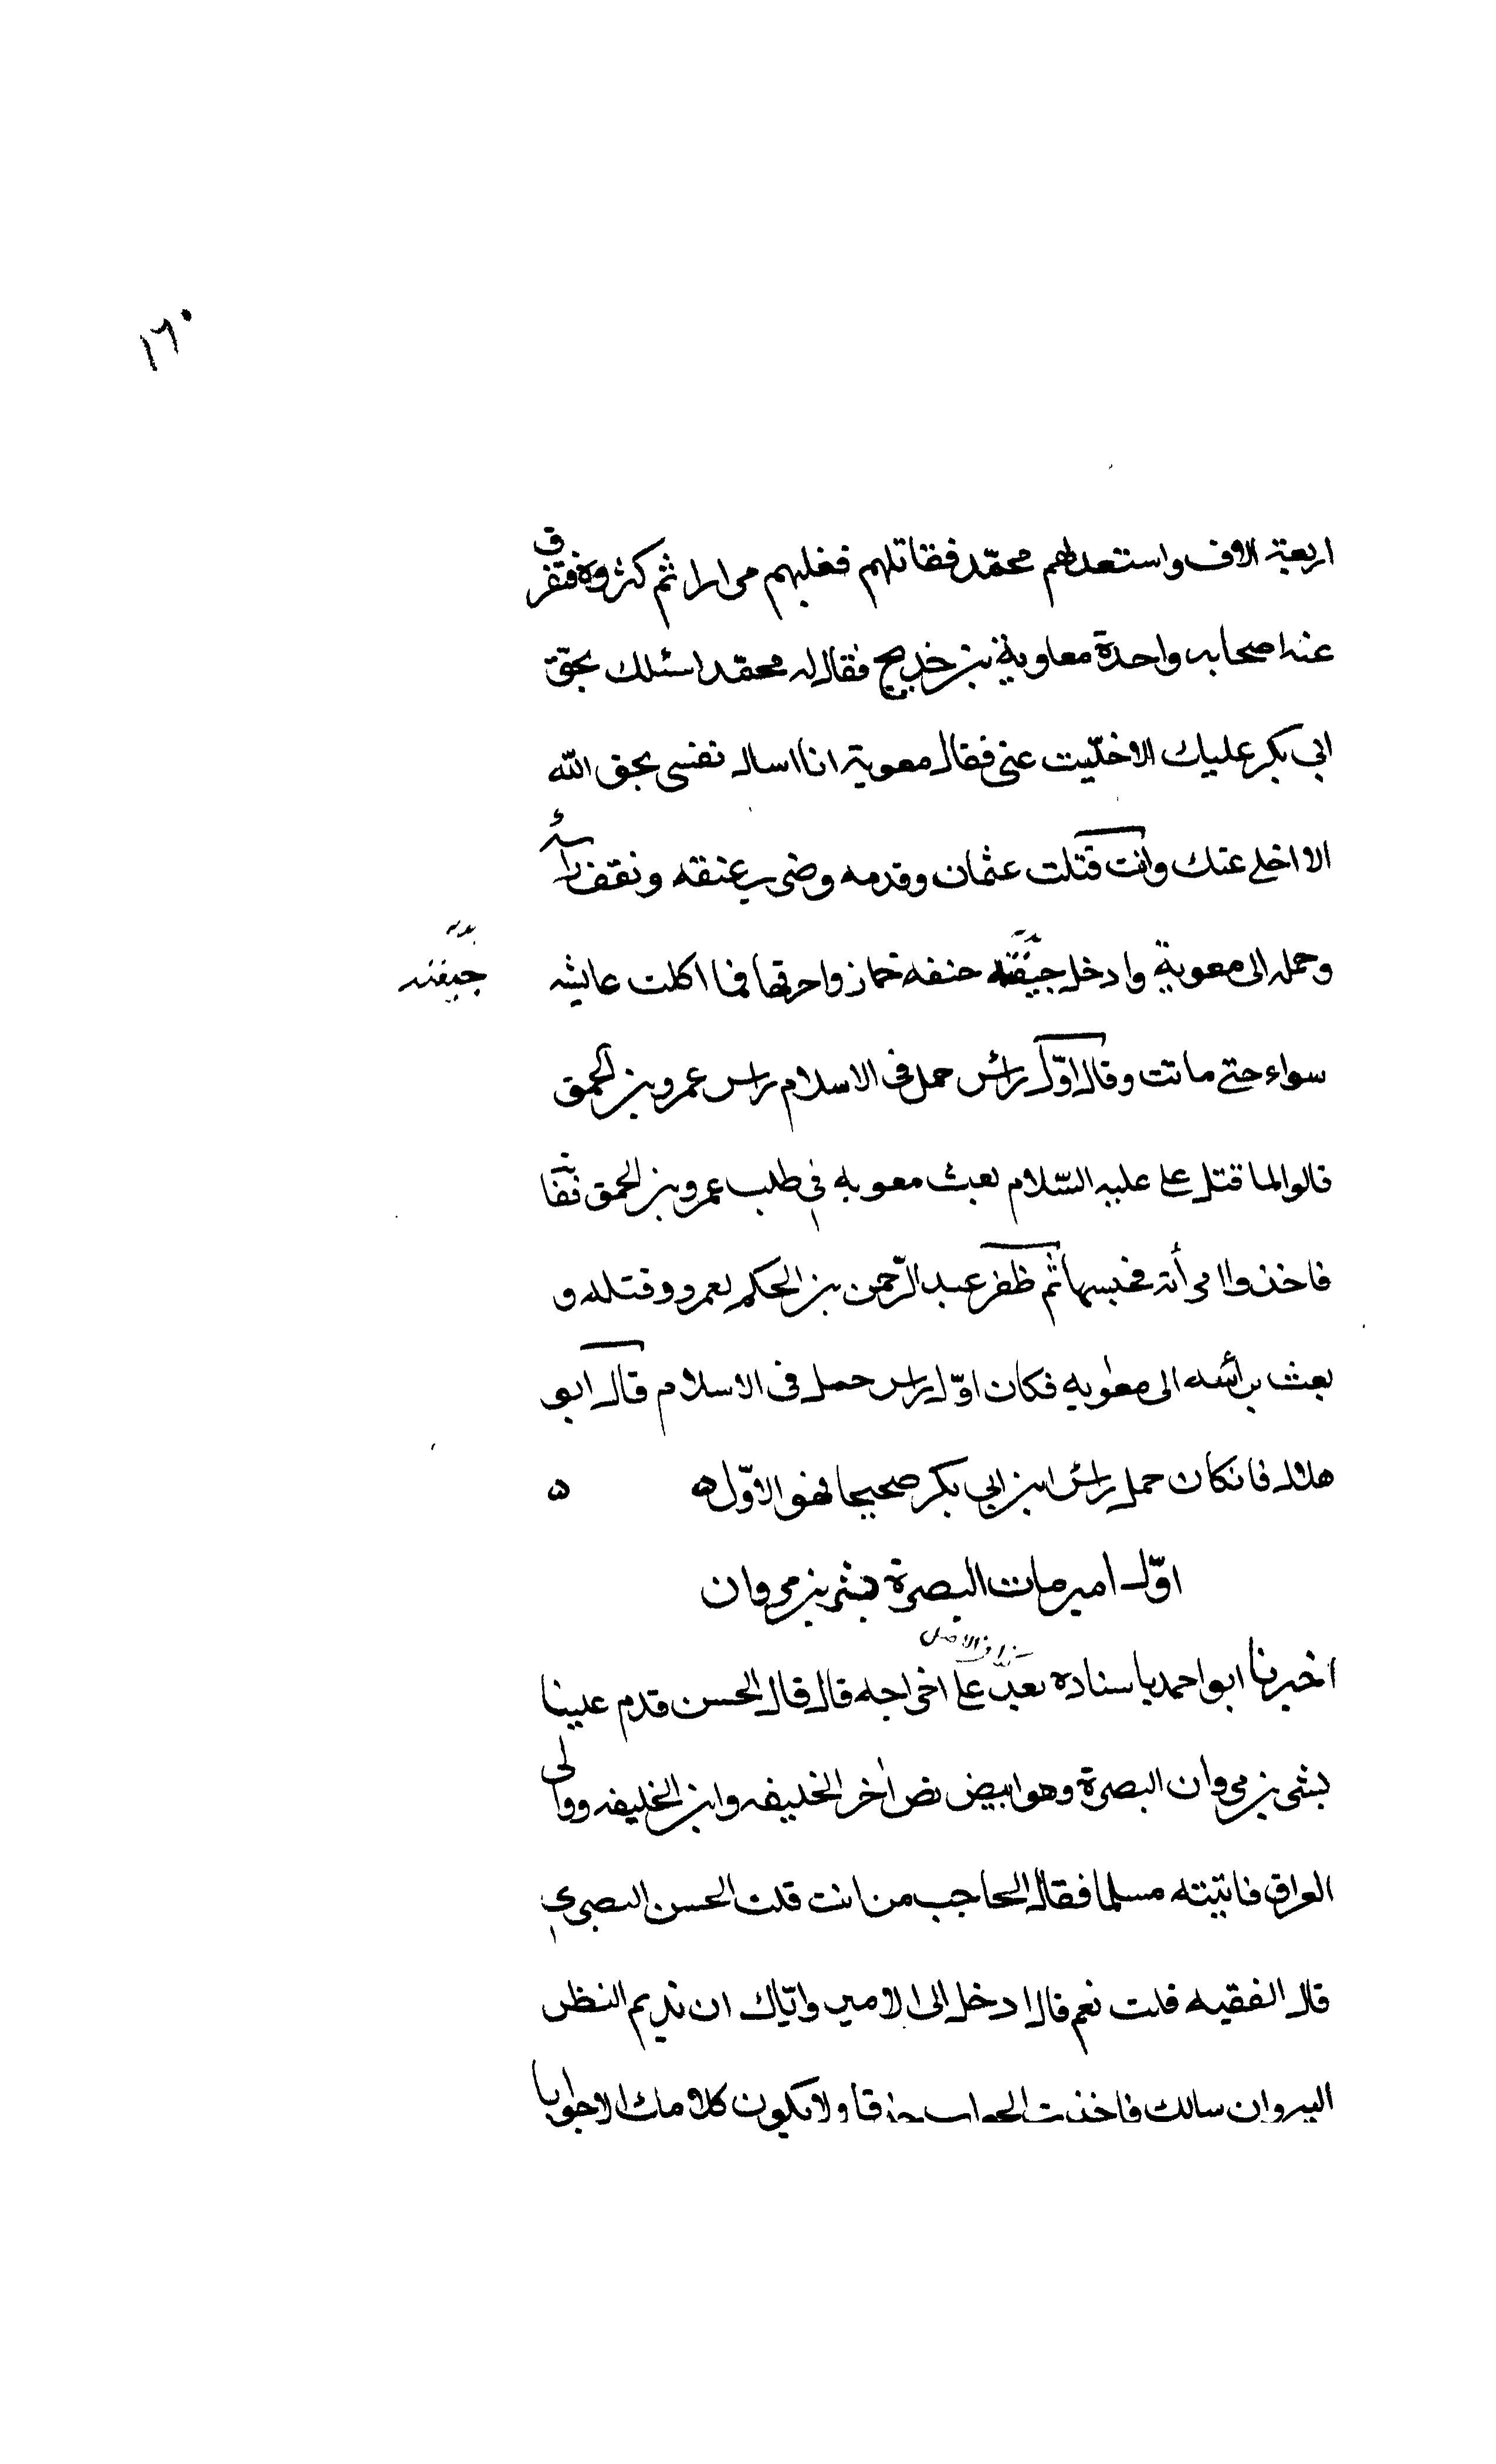 ١٦٠
اربعة الاف واستعدلهم محمّد فقاتلهم فغلبهم مرارا ثم كثروه فتفرق
عنه اصحابه واحدة معاوية بن خديج فقال له محمّد اسئلك بحق
ابي بكر عليك الا خلّيت عني فقال معوية انا اسال نفسي بحق الله
الا اخلي عنك وانت قتلت عثمان وقدمه وضرب عنقه ونقف راسه
وحمله الى معوية وادخل جيفته حنفه حمار واحرقها فما اكلت عايشه
جيفته
سواء حتى ماتت وقال اوّل رأس حمل في الاسلام راس عمرو بن الحمق
قالوا لما قتل علي عليه السّلام بعث معويه في طلب عمرو بن الحمق ففا
فاخذوا امرأته فحبسها ثم ظفر عبد الرّحمن بن الحكم بعمرو وقتله و
بعث برأسه الى معويه فكان اوّل راس حمل في الاسلام قال ابو
هلال فانكان حمل رأس ابن ابي بكر صحيحا فهو الاوّل ه ه
اوّل امير مات البصرة بشر بن مروان
كذا في الاصل
اخبرنا ابو احمد باسناده بعد علي اخراجه قال قال الحسن قدم علينا
بشر بن مروان البصرة وهو ابيض بض اخر الخليفه وابن الخليفه ووالى
العراق فاتيته مسلما فقال الحاجب من انت قلت الحسن البصري
قال الفقيه قلت نعم قال ادخل الى الامير وايّاك ان تديم النظر
اليه وان سالك فاخذت الجواب حذقا ولا يكون كلامك الا جوابا